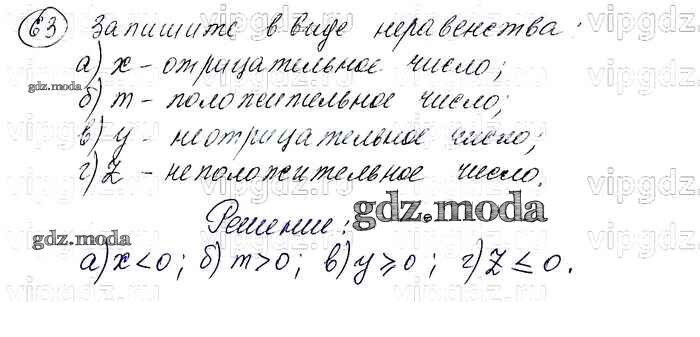 63 Запишите в виде неравенства:
а) x - отрицательное число;
gdz.moda
б) m - положительное число;
в) y - неотрицательное число;
г) Z - неположительное число.
Решение:
gdz.moda
gdz.moda
а) x < 0; б) m > 0; в) y ⩾ 0; г) Z ≤ 0.